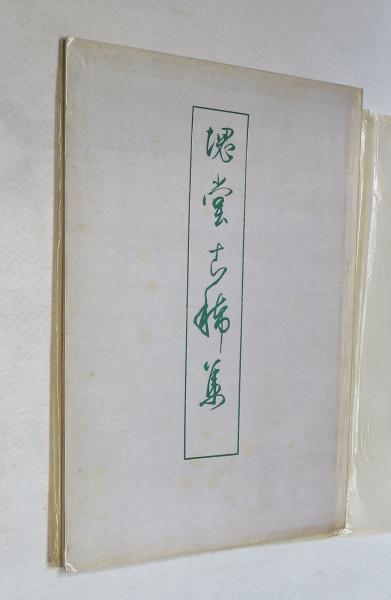 塊堂古稀集